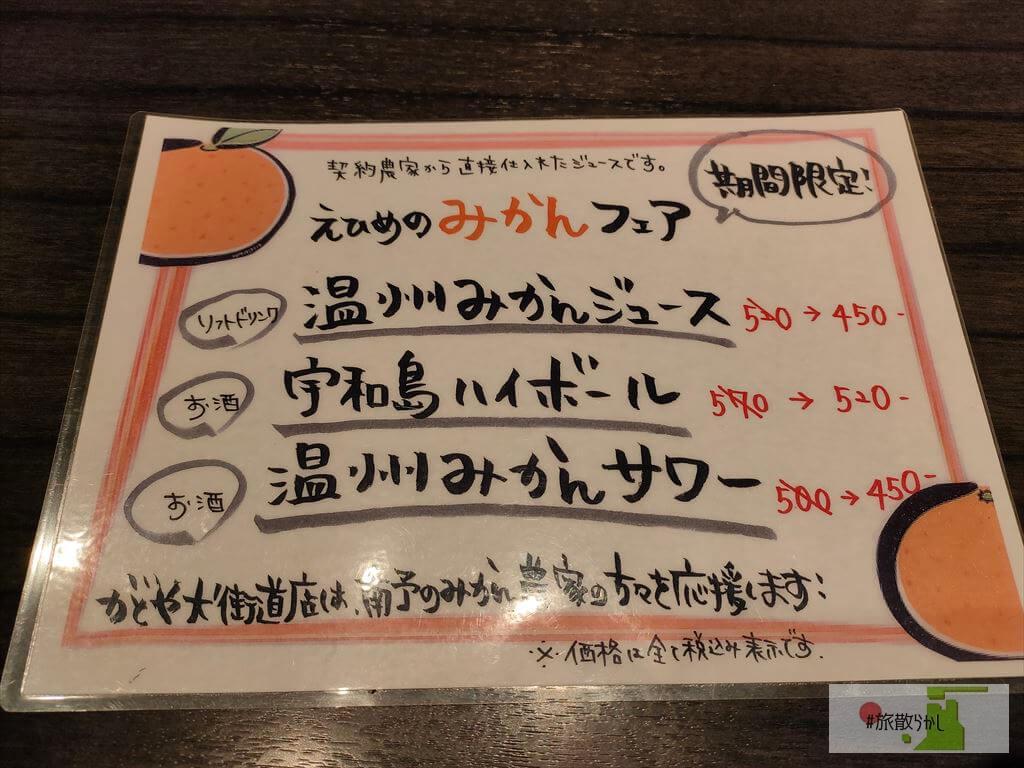 契約農家から直接仕入れたジュースです。
期間限定!
えひめのみかんフェア
ソフトドリンク 温州みかんジュース 520→450-
お酒 宇和島ハイボール 570→520-
お酒 温州みかんサワー 500→450-
かどや大街道店は、南予のみかん農家の方々を応援します!
※価格は全て税込み表示です.
#旅散らかし